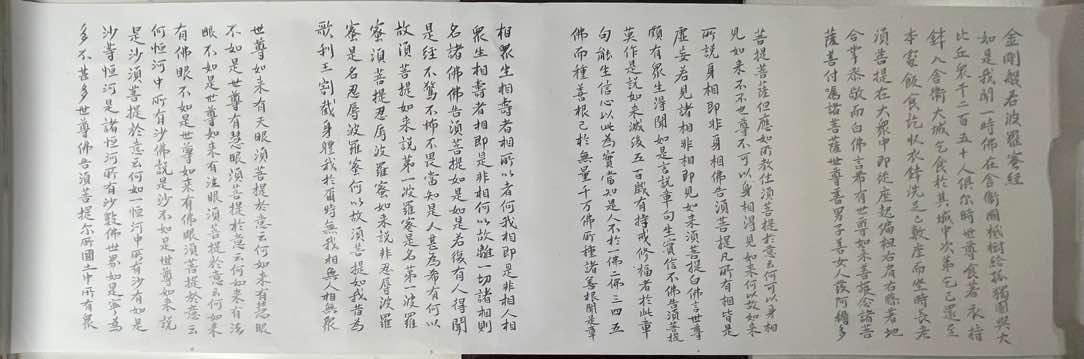 金剛般若波羅蜜經
如是我聞一時佛在舍衛國祇樹給孤獨園與大
比丘眾千二百五十人俱尔時世尊食時著衣持
鉢入舍衛大城乞食於其城中次第乞已還至
本處飯食訖收衣鉢洗足已敷座而坐時長老
須菩提在大眾中即從座起偏袒右肩右膝著地
合掌恭敬而白佛言希有世尊如來善護念諸菩
薩善付囑諸菩薩世尊善男子善女人發阿耨多
菩提菩薩但應如所教住須菩提於意云何可以身相
見如來不不也世尊不可以身相得見如來何以故如來
所說身相即非身相佛告須菩提凡所有相皆是
虛妄若見諸相非相即見如來須菩提白佛言世尊
頗有眾生得聞如是言說章句生實信不佛告須菩提
莫作是說如來滅後五百歲有持戒修福者於此章
句能生信心以此為實當知是人不於一佛二佛三四五
佛而種善根已於無量千万佛所種諸善根聞是章
相眾生相壽者相所以者何我相即是非相人相
眾生相壽者相即是非相何以故離一切諸相則
名諸佛佛告須菩提如是如是若復有人得聞
是經不驚不怖不畏當知是人甚為希有何以
故須菩提如來說第一波羅蜜是名第一波羅
蜜須菩提忍辱波羅蜜如來說非忍辱波羅
蜜是名忍辱波羅蜜何以故須菩提如我昔為
歌利王割截身體我於爾時無我相無人相無眾
世尊如來有天眼須菩提於意云何如來有慧眼
不如是世尊有慧眼須菩提於意云何如來有法
眼不如是世尊如來有法眼須菩提於意云
有佛眼不如是世尊如來有佛眼須菩提於意云
何恒河中所有沙佛說是沙不如是世尊如來說
是沙須菩提於意云何如一恒河中所有沙有如是
沙等恒河是諸恒河所有沙數佛世界如是寧為
多不甚多世尊佛告須菩提尔所國土中所有眾